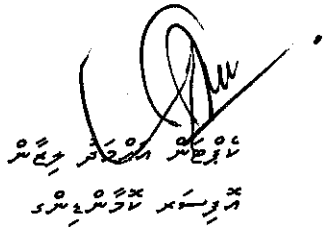 ކެޕްޓަން އަޙްމަދު ލިޒާން
އޮފިސަރ ކޮމާންޑިންގ